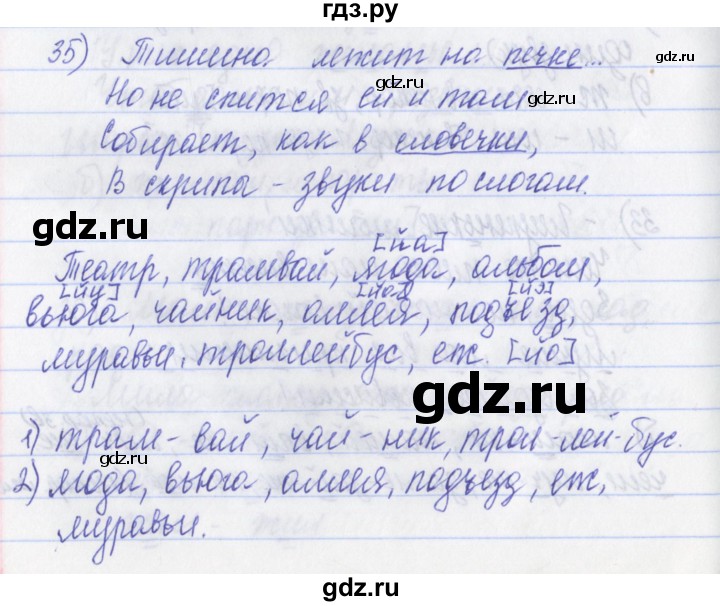 гдз.ру
35) Тишина лежит на печке...
gdz.ru
gdz.ru
Но не спится ей и там
gdz.ru
Собирает, как в словечки,
В скрипы - звуки по слогам.
gdz.ru
gdz.ru
[йа]
Театр, трамвай, ягода, альбом,
[йу] [йа] [йэ]
вьюга, чайник, аллея, подъезд,
муравьи, троллейбус, еж. [йо]
gdz.ru
1) трам - вай, чай - ник, трол - лей - бус.
gdz.ru
2) ягода, вьюга, аллея, подъезд, еж,
муравьи.
gdz.ru
gdz.ru